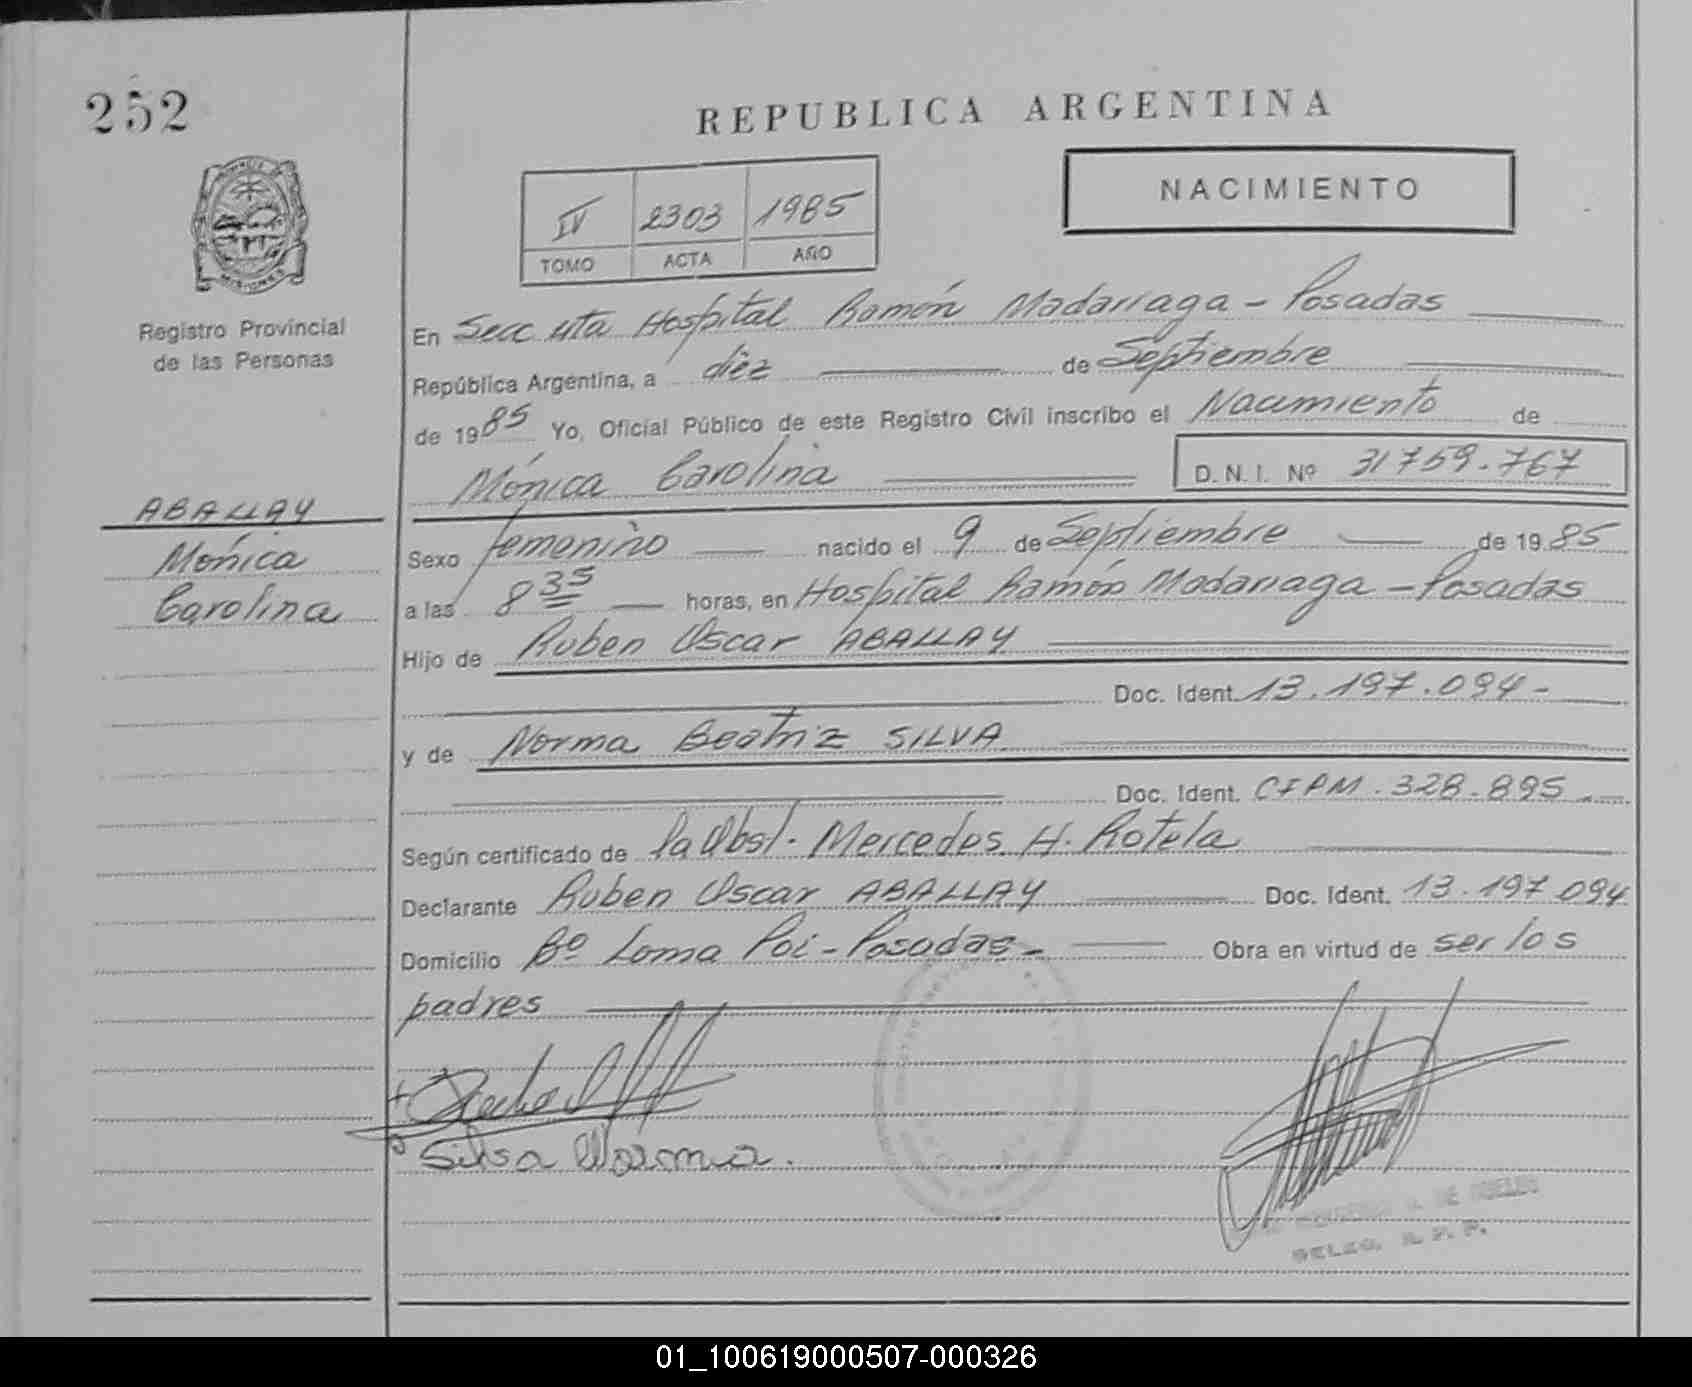 252
REPUBLICA ARGENTINA
NACIMIENTO
IV 2303 1985
TOMO ACTA AÑO
PROVINCIA DE
MISIONES
Registro Provincial
de las Personas
ABALLAY
Mónica
Carolina
En Secc 4ta Hospital Ramón Madariaga - Posadas
República Argentina, a diez de Septiembre
de 1985 Yo, Oficial Público de este Registro Civil inscribo el Nacimiento de
Mónica Carolina D.N.I. Nº 31759.767
Sexo femenino nacido el 9 de Septiembre de 1985
a las 8 35 horas, en Hospital Ramón Madariaga - Posadas
Hijo de Ruben Oscar ABALLAY
Doc. Ident. 13.197.094-
y de Norma Beatriz SILVA
Doc. Ident. CIPM. 328.895
Según certificado de la Obst. Mercedes H. Rotela
Declarante Ruben Oscar ABALLAY Doc. Ident. 13.197 094
Domicilio Bº Loma Poi - Posadas - Obra en virtud de ser los
padres
Silva Norma.
01_100619000507-000326